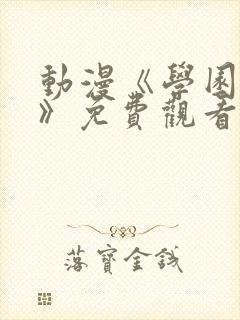 動漫《學園
》免費觀看
落寶金錢